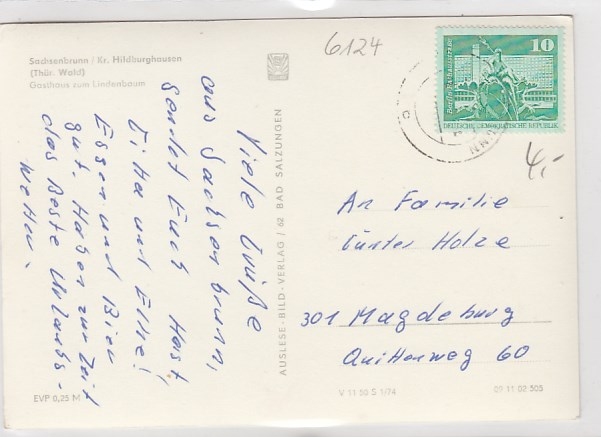 Sachsenbrunn / Kr. Hildburghausen
(Thür. Wald)
Gasthaus zum Lindenbaum
6124
Viele Grüße
aus Sachsenbrunn,
sendet Euch Horst,
Gitta und Elke!
Essen und Bier
gut. Haben zur Zeit
das Beste Urlaubs-
wetter.
AUSLESE-BILD-VERLAG / 62 BAD SALZUNGEN
10
DEUTSCHE DEMOKRATISCHE REPUBLIK
4,-
An Familie
Günter Holze
301 Magdeburg
Quittenweg 60
EVP 0,25 M
V 11 50 S 1/74
09 11 02 305